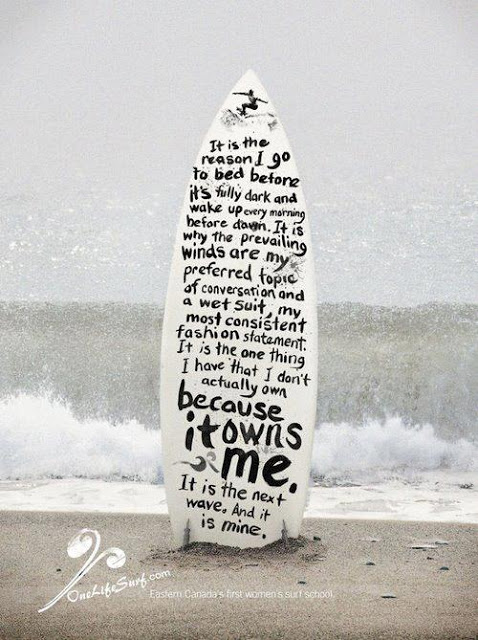 It is the
reason I go
to bed before
it's fully dark and
wake up every morning
before dawn. It is
why the prevailing
winds are my
preferred topic
of conversation and
a wet suit, my
most consistent
fashion statement.
It is the one thing
I have that I don't
actually own
because
it owns
me.
It is the next
wave. And it
is mine.
OneLifeSurf.com
Eastern Canada's first women's surf school.